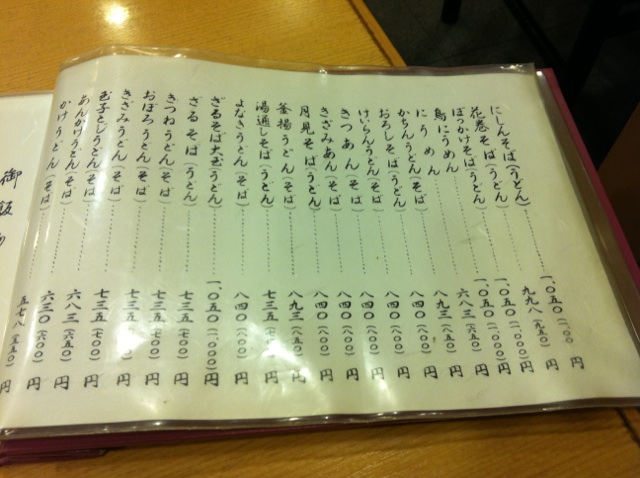 にしんそば(うどん)……一.〇五〇(一.〇〇〇)円
花巻そば(うどん)……九九八(九五〇)円
ぼっかけそば(うどん)……一.〇五〇(一.〇〇〇)円
鳥にうめん……一.〇五〇(一.〇〇〇)円
にうめん……六八三(六五〇)円
かちんうどん(そば)……八九三(八五〇)円
おろしそば(うどん)……八四〇(八〇〇)円
けいらんうどん(そば)……八四〇(八〇〇)円
きつあん(そば)……八四〇(八〇〇)円
きざみあん(そば)……八四〇(八〇〇)円
月見そば(うどん)……八四〇(八〇〇)円
釜揚うどん(そば)……八九三(八五〇)円
湯通しそば(うどん)……七三五(七〇〇)円
よなきうどん(そば)……八四〇(八〇〇)円
ざるそば大盛(うどん)……一.〇五〇(一.〇〇〇)円
ざるそば(うどん)……七三五(七〇〇)円
きつねうどん(そば)……七三五(七〇〇)円
おぼろうどん(そば)……七三五(七〇〇)円
きざみうどん(そば)……七三五(七〇〇)円
玉子とじうどん(そば)……六八三(六五〇)円
あんかけうどん(そば)……六三〇(六〇〇)円
かけうどん(そば)……五七八(五五〇)円
御飯